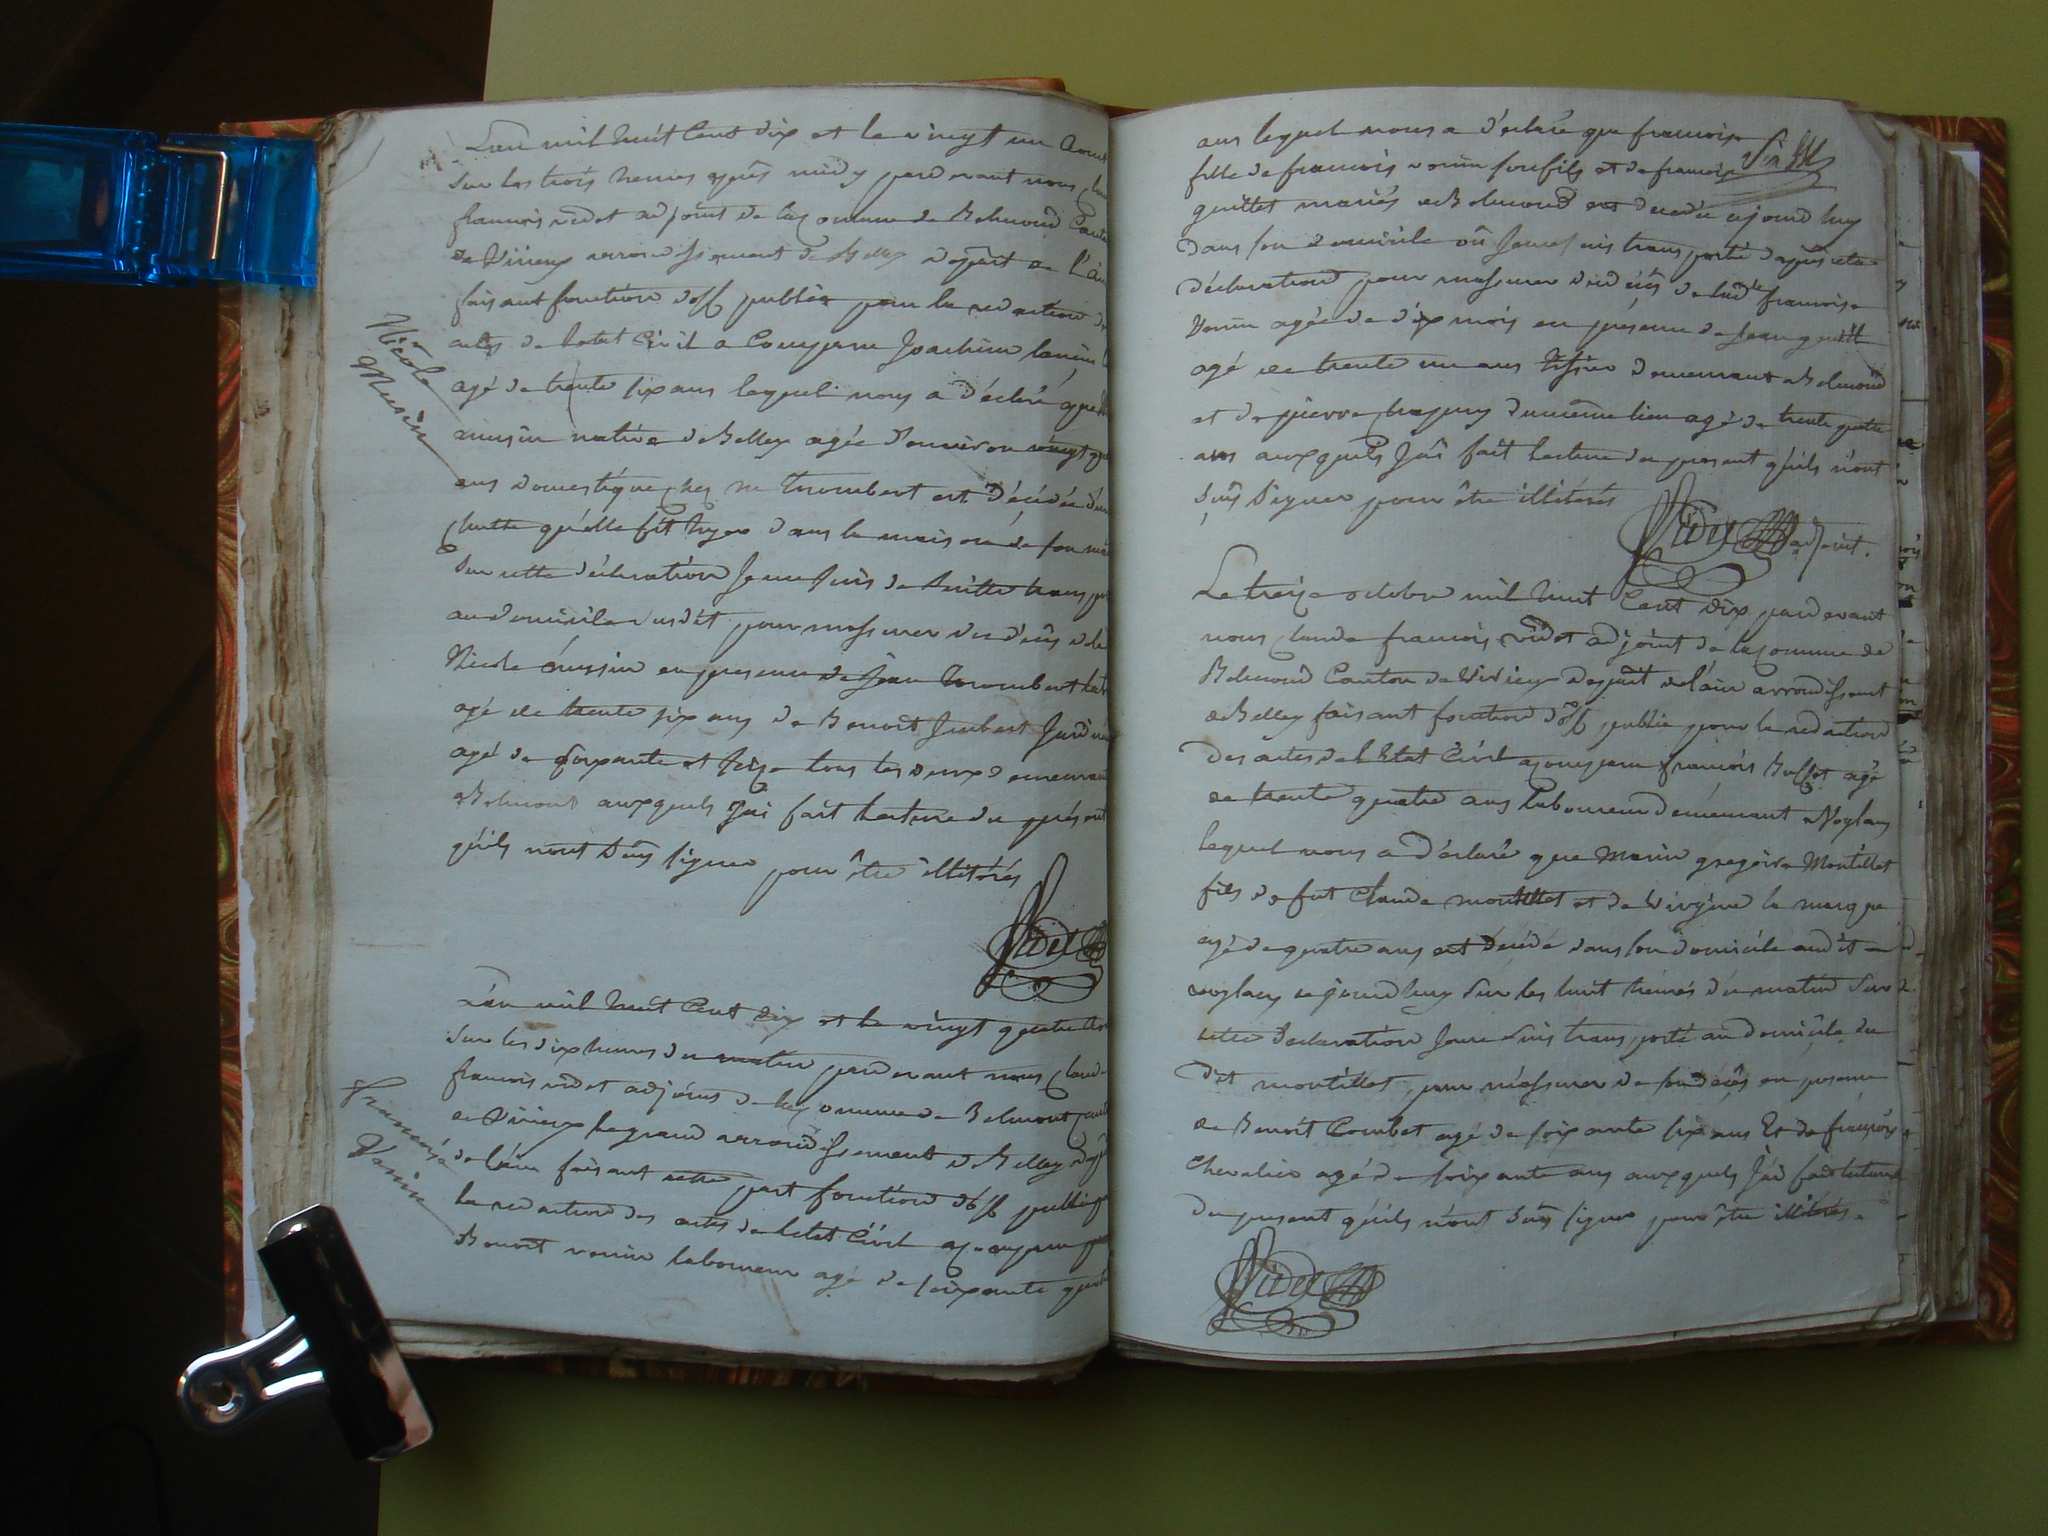 L'an mil huit Cent dix et le vingt un aoust
Sur les trois heures après midy pardevant nous
francois vidot adjoint de la Comune de Belmond Canton
de Virieux arrondissement de Belley depart de l'ain
faisant fonction d'off publiq pour la redaction des
actes de letat Civil a Comparu Joachim
agé de trente six ans lequel nous a déclaré que
Nicole
Musin
musin native de Belley agée d'environ vingt
ans domestique chez mr trombert est décédée d'une
chutte qu'elle fit hyer dans la maison de son
Sur cette déclaration Je me suis de suitte
au domicile susdit pour massurer du décès de la
Nicole musin en presence de Jean trombert
agé de trente six ans de Benoit Jardinier
agé de soixante et seize tous les deux demeurant
a Belmont auxquels Jai fait lecture du présent
qu'ils nont sçus signer pour être illitérés
Vidot
L'an mil huit Cent dix et le vingt quatre
Sur les dix heures du matin pardevant nous claude
francois vidot adjoint de la Comune de Belmont
de Virieux le grand arrondissement de Belley
Françoise
Vonin
de lain faisant cette part fonction d'off publiq
la redaction des actes de letat Civil a comparu
Benoit vonin laboureur agé de soixante quatre
ans lequel nous a déclaré que francoise
fille de francois vonin son fils et de francoise
guillet mariés a Belmond est decedée ajourd huy
dans son domicile où Je me suis transporté d'après cette
déclaration pour massurer du décès de lade francoise
Vonin agée de dix mois en présence de Jean guillt
agé de trente un ans demeurant a Belmond
et de pierre du meme lieu agé de trente quatre
ans auxquels Jai fait lecture du present qu'ils n'ont
sçus signer pour être illitérés
Vidot adjoint.
Le treize octobre mil huit Cent dix pardevant
nous claude francois vidot adjoint de la Comune de
Belmond Canton de Virieux depart de lain arrondissement
de Belley faisant fonction d'off publiq pour la redaction
des actes de l'Etat Civil a comparu francois agé
de trente quatre ans laboureur demeurant a Voglans
lequel nous a déclaré que Marin gregoire Montillet
fils de fut Claude montillet et de la
agé de quatre ans est décédé dans son domicile audit
voglans ajourdhuy Sur les huit heures du matin Sur
cette declaration Je me suis transporté au domicile du
dit montillet, pour m'assurer de son decès en presence
de Benoit Combet agé de soixante six ans Et de françois
Chevalier agé de soixante ans auxquels J'ai fait lecture
du present qu'ils n'ont sçus signer pour être illitérés.
Vidot